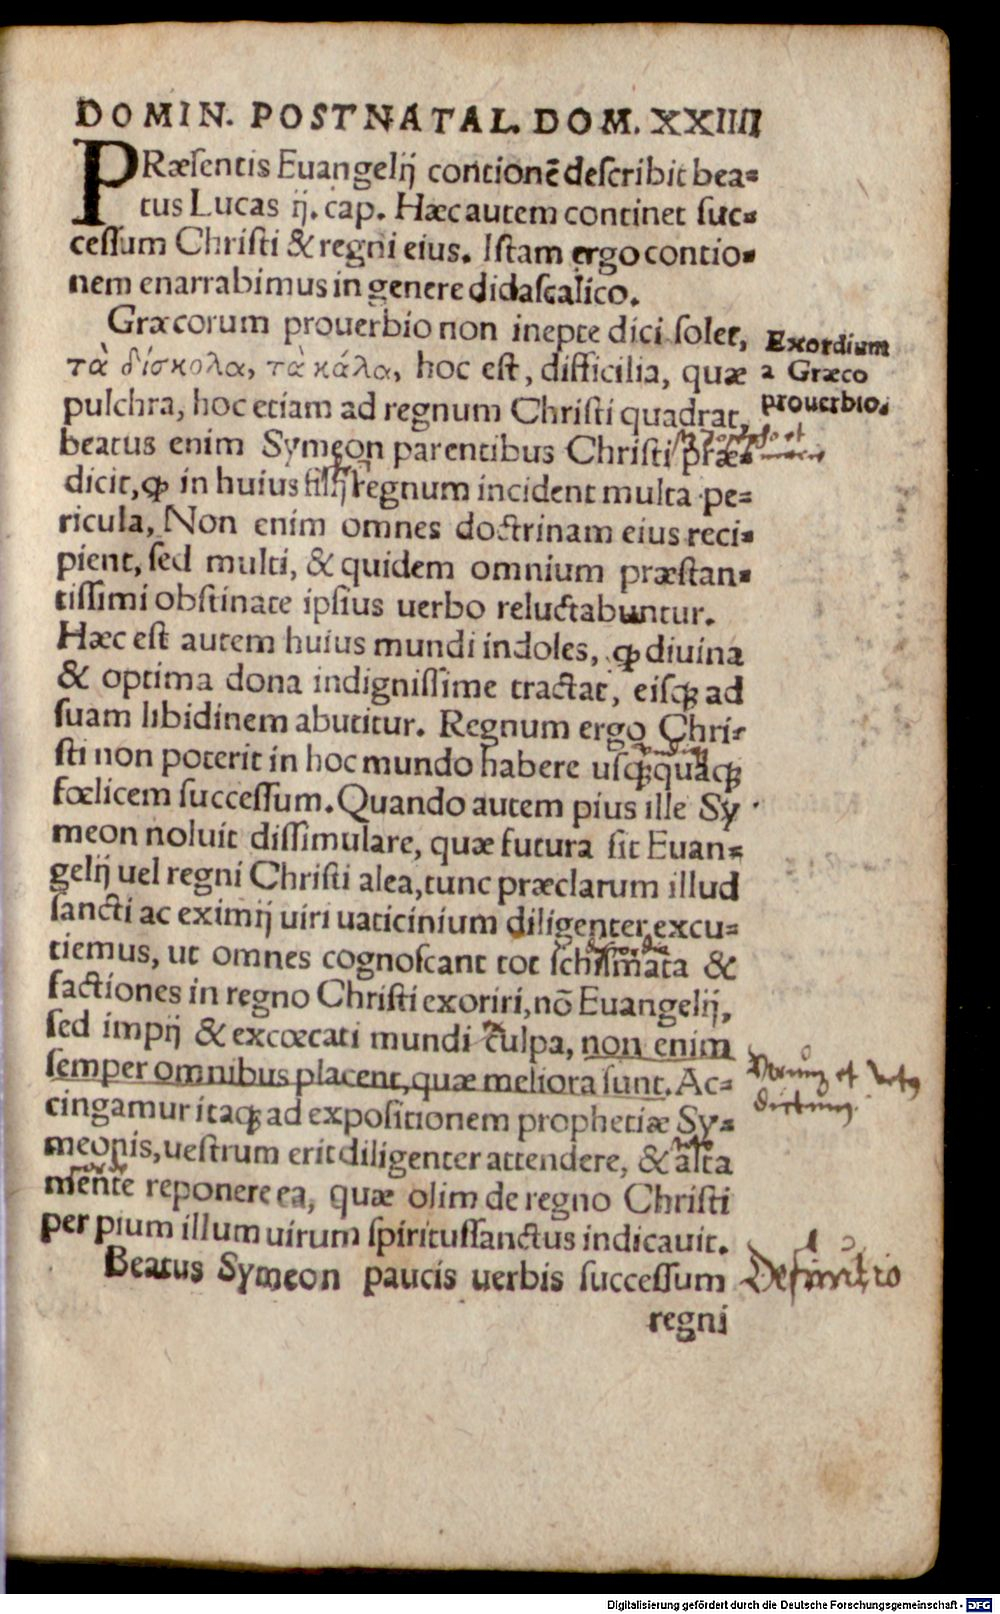 DOMIN. POST NATAL. DOM. XXIIII
PRæſentis Euangelij contionē deſcribit bea=
tus Lucas ij. cap. Hæc autem continet ſuc=
ceſſum Chriſti & regni eius. Iſtam ergo contio=
nem enarrabimus in genere didaſcalico.
Græcorum prouerbio non inepte dici ſolet,
τὰ δίσκολα, τὰ κάλα, hoc eſt, difficilia, quæ
pulchra, hoc etiam ad regnum Chriſti quadrat,
Exordium
a Græco
prouerbio.
beatus enim Symeon parentibus Chriſti præ=
dicit, ꝙ in huius filij regnum incident multa pe=
ricula, Non enim omnes doctrinam eius reci=
pient, ſed multi, & quidem omnium præſtan=
tiſſimi obſtinate ipſius uerbo reluctabuntur.
Hæc eſt autem huius mundi indoles, ꝙ diuina
& optima dona indigniſſime tractat, eiſqꝫ ad
ſuam libidinem abutitur. Regnum ergo Chri=
ſti non poterit in hoc mundo habere uſqꝫquaqꝫ
fœlicem ſucceſſum. Quando autem pius ille Sy
meon noluit diſſimulare, quæ futura ſit Euan=
gelij uel regni Chriſti alea, tunc præclarum illud
ſancti ac eximij uiri uaticinium diligenter excu=
tiemus, ut omnes cognoſcant tot ſchiſmata &
factiones in regno Chriſti exoriri, nō Euangelij,
ſed impij & excœcati mundi culpa, non enim
ſemper omnibus placent, quæ meliora ſunt. Ac=
cingamur itaqꝫ ad expoſitionem prophetiæ Sy=
meonis, ueſtrum erit diligenter attendere, & alta
mente reponere ea, quæ olim de regno Chriſti
per pium illum uirum ſpirituſſanctus indicauit.
Beatus Symeon paucis uerbis ſucceſſum
Definitio
regni
Digitalisierung gefördert durch die Deutsche Forschungsgemeinschaft - DFG